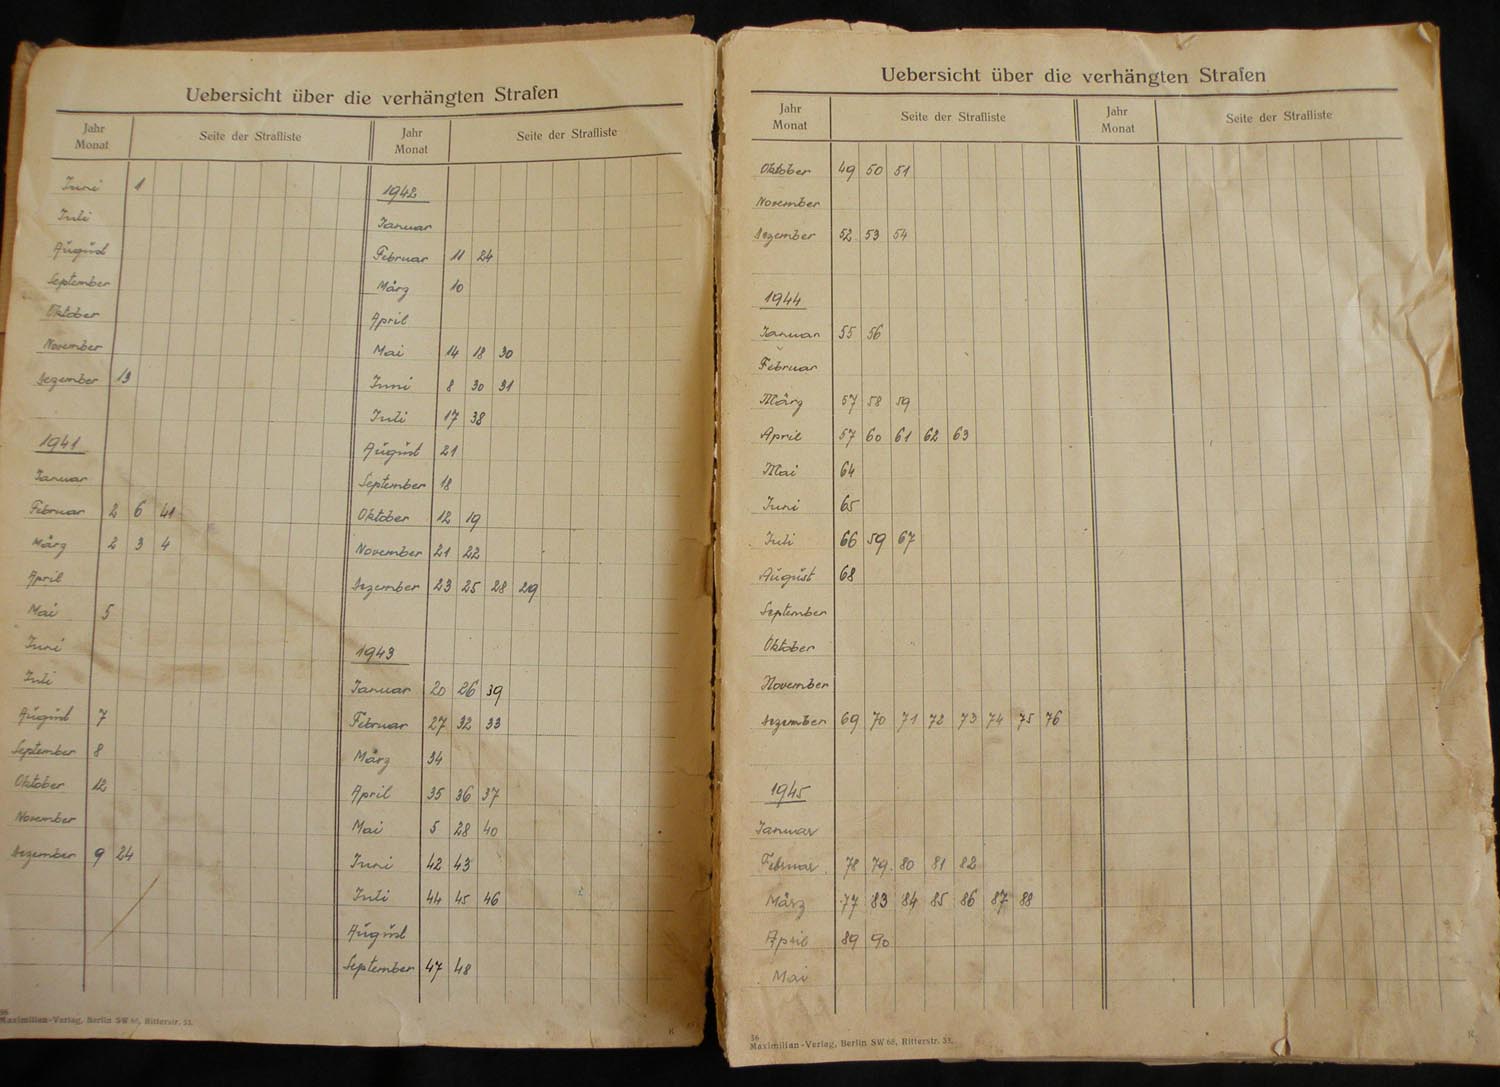 Uebersicht über die verhängten Strafen
Jahr
Monat
Seite der Strafliste
Juni 1
Juli
August
September
Oktober
November
Dezember 13
1941
Januar
Februar 2 6 41
März 2 3 4
April
Mai 5
Juni
Juli
August 7
September 8
Oktober 12
November
Dezember 9 24
Jahr
Monat
Seite der Strafliste
1942
Januar
Februar 11 24
März 10
April
Mai 14 18 30
Juni 8 30 31
Juli 17 38
August 21
September 18
Oktober 12 19
November 21 22
Dezember 23 25 28 29
1943
Januar 20 26 39
Februar 27 32 33
März 34
April 35 36 37
Mai 5 28 40
Juni 42 43
Juli 44 45 46
August
September 47 48
Maximilian-Verlag, Berlin SW 68, Ritterstr. 53.
Uebersicht über die verhängten Strafen
Jahr
Monat
Seite der Strafliste
Oktober 49 50 51
November
Dezember 52 53 54
1944
Januar 55 56
Februar
März 57 58 59
April 57 60 61 62 63
Mai 64
Juni 65
Juli 66 59 67
August 68
September
Oktober
November
Dezember 69 70 71 72 73 74 75 76
1945
Januar
Februar 78 79 80 81 82
März 77 83 84 85 86 87 88
April 89 90
Mai
Jahr
Monat
Seite der Strafliste
56
Maximilian-Verlag, Berlin SW 68, Ritterstr. 53.